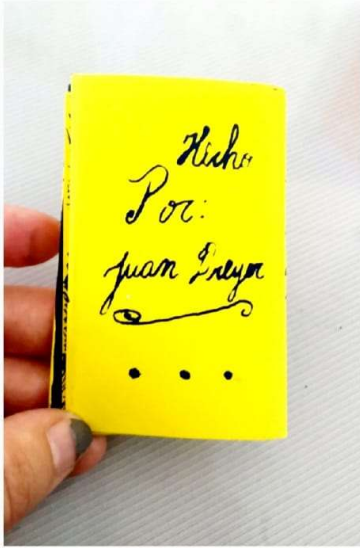 Hecho
Por:
Juan Dreyer